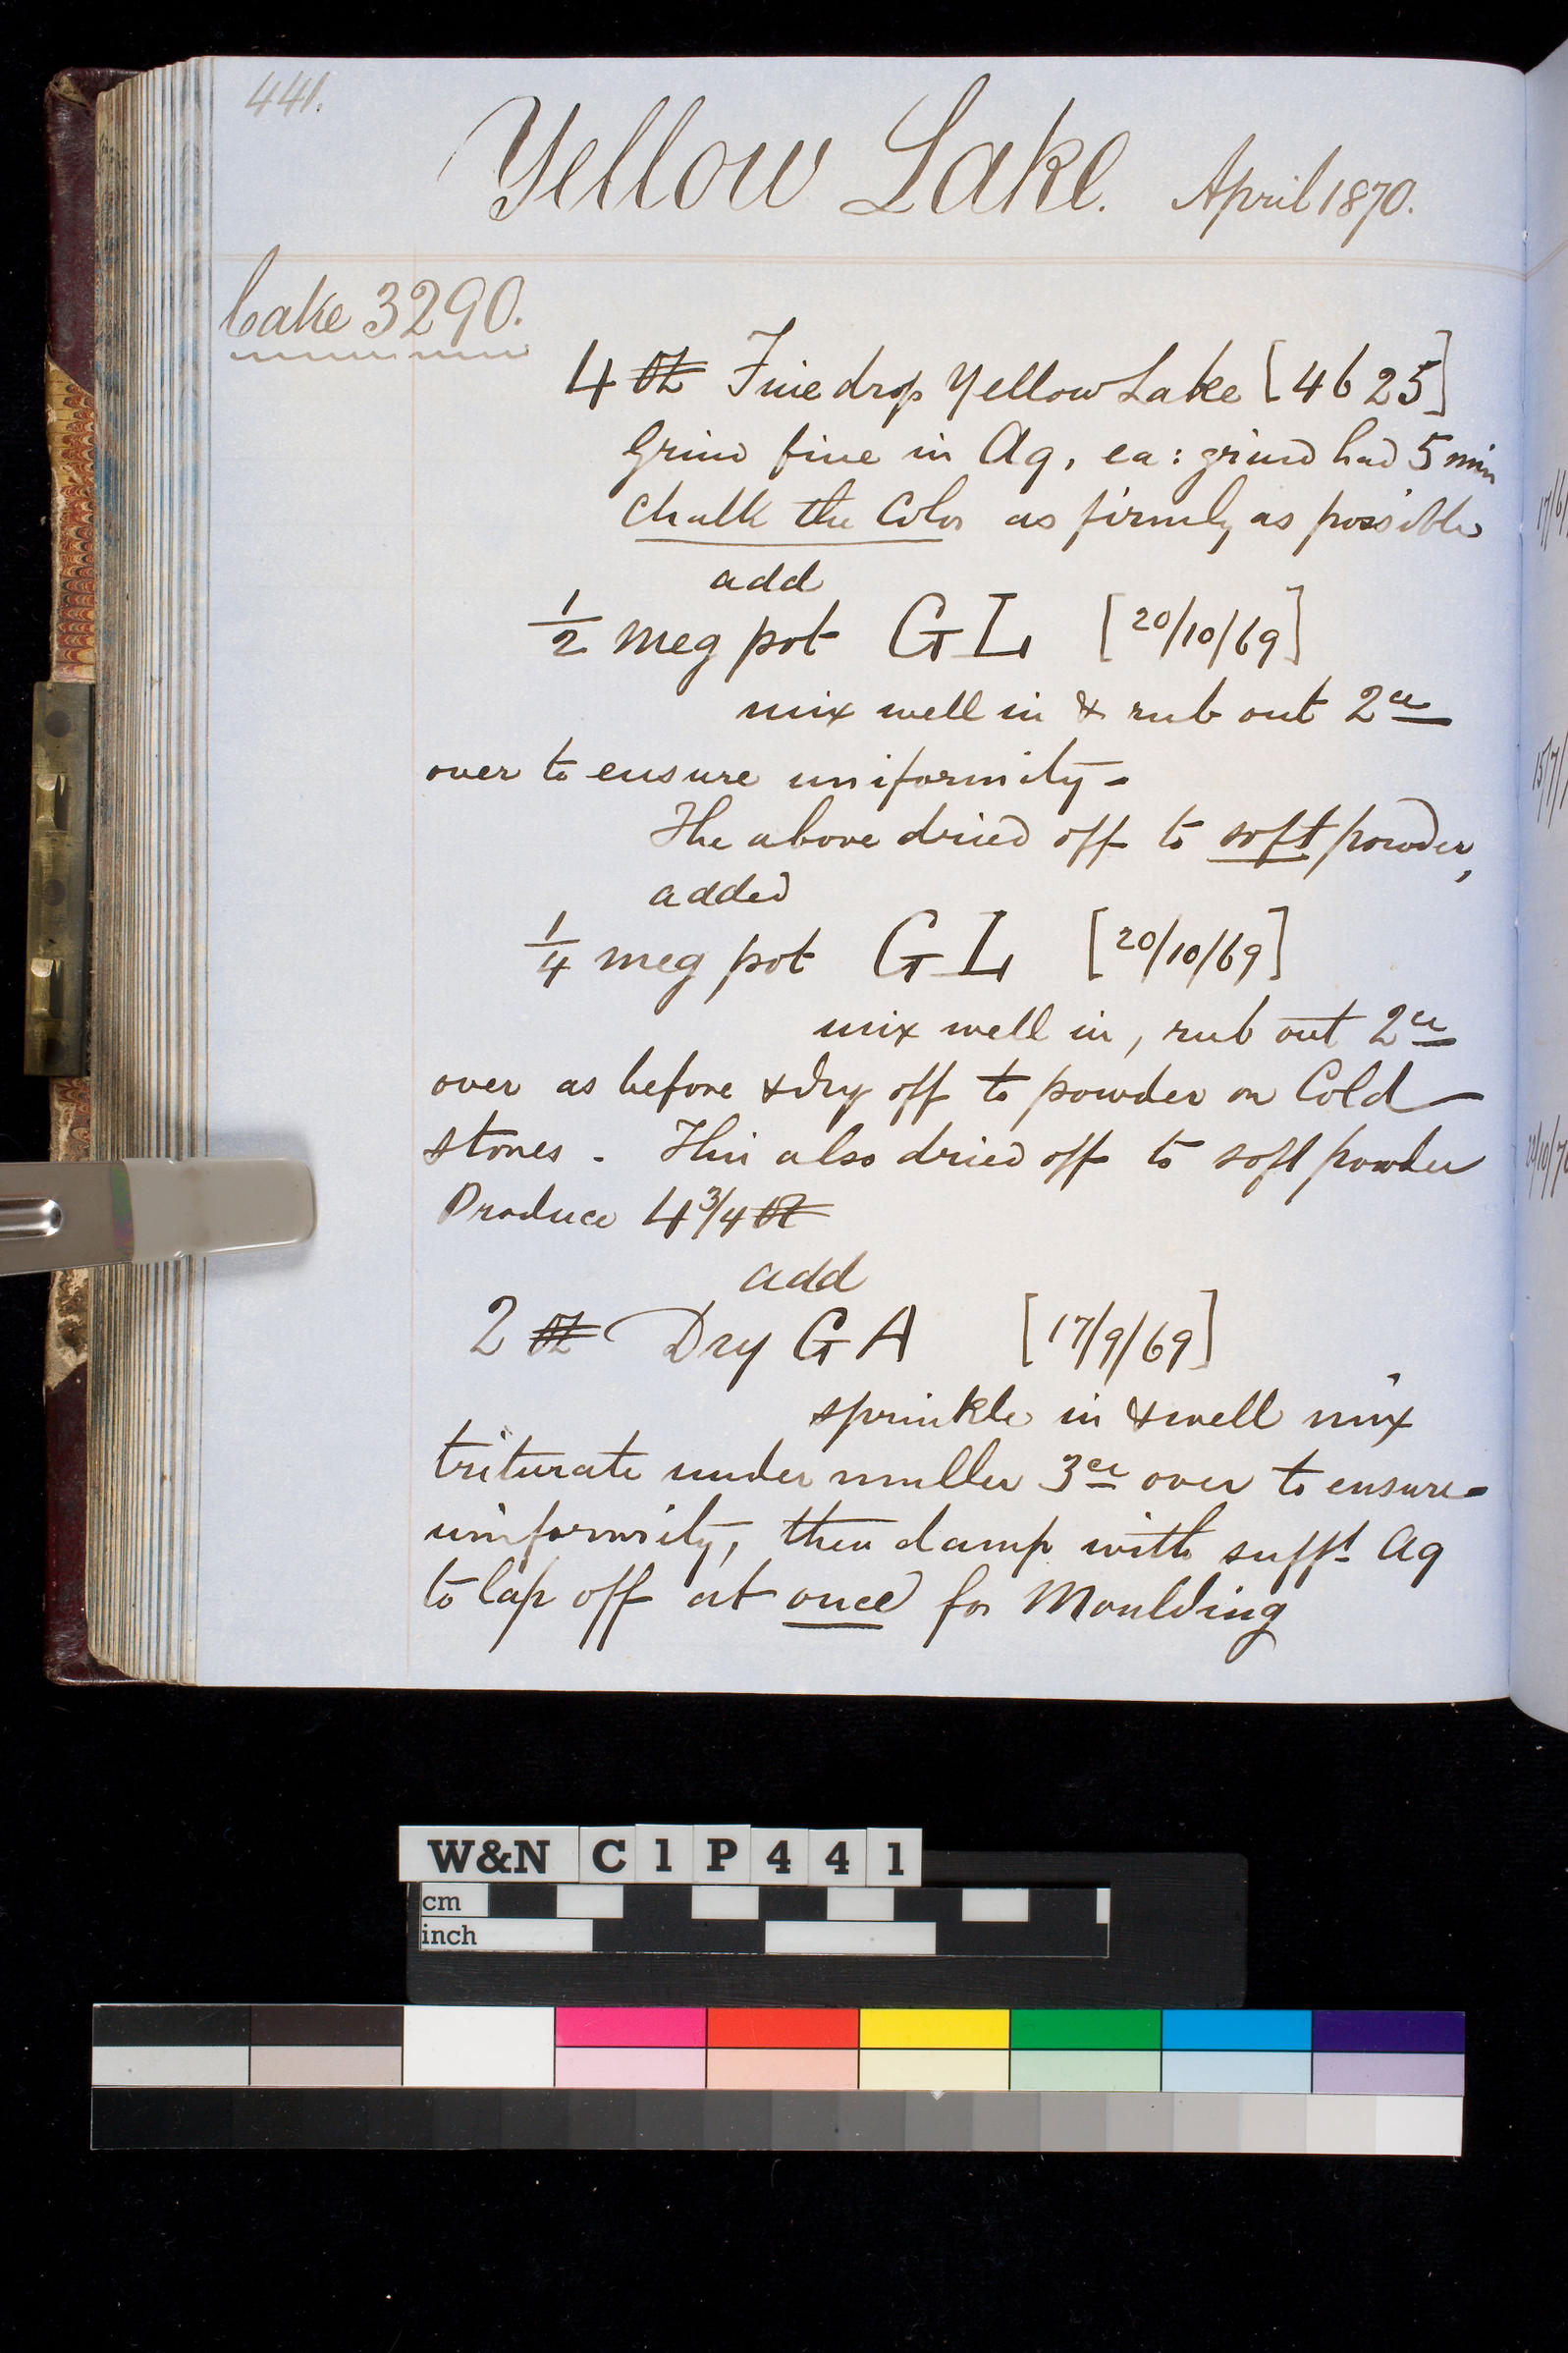 441.
Yellow Lake. April 1870.
Cake 3290.
4 lb Fine drop Yellow Lake [4625]
Grind fine in Aq, ea: grind had 5 min
Chalk the Color as firmly as possible
add
1/2 meg pot GL [20/10/69]
mix well in & rub out 2ce
over to ensure uniformity -
The above dried off to soft powder,
added
1/4 meg pot GL [20/10/69]
mix well in, rub out 2ce
over as before & dry off to powder on Cold
stones - This also dried off to soft powder
Produce 4 3/4 lb
add
2 lb Dry GA [17/9/69]
sprinkle in & well mix
triturate under muller 3ce over to ensure
uniformity, then damp with sufft Aq
to lap off at once for Moulding
W&N C1P441
cm
inch